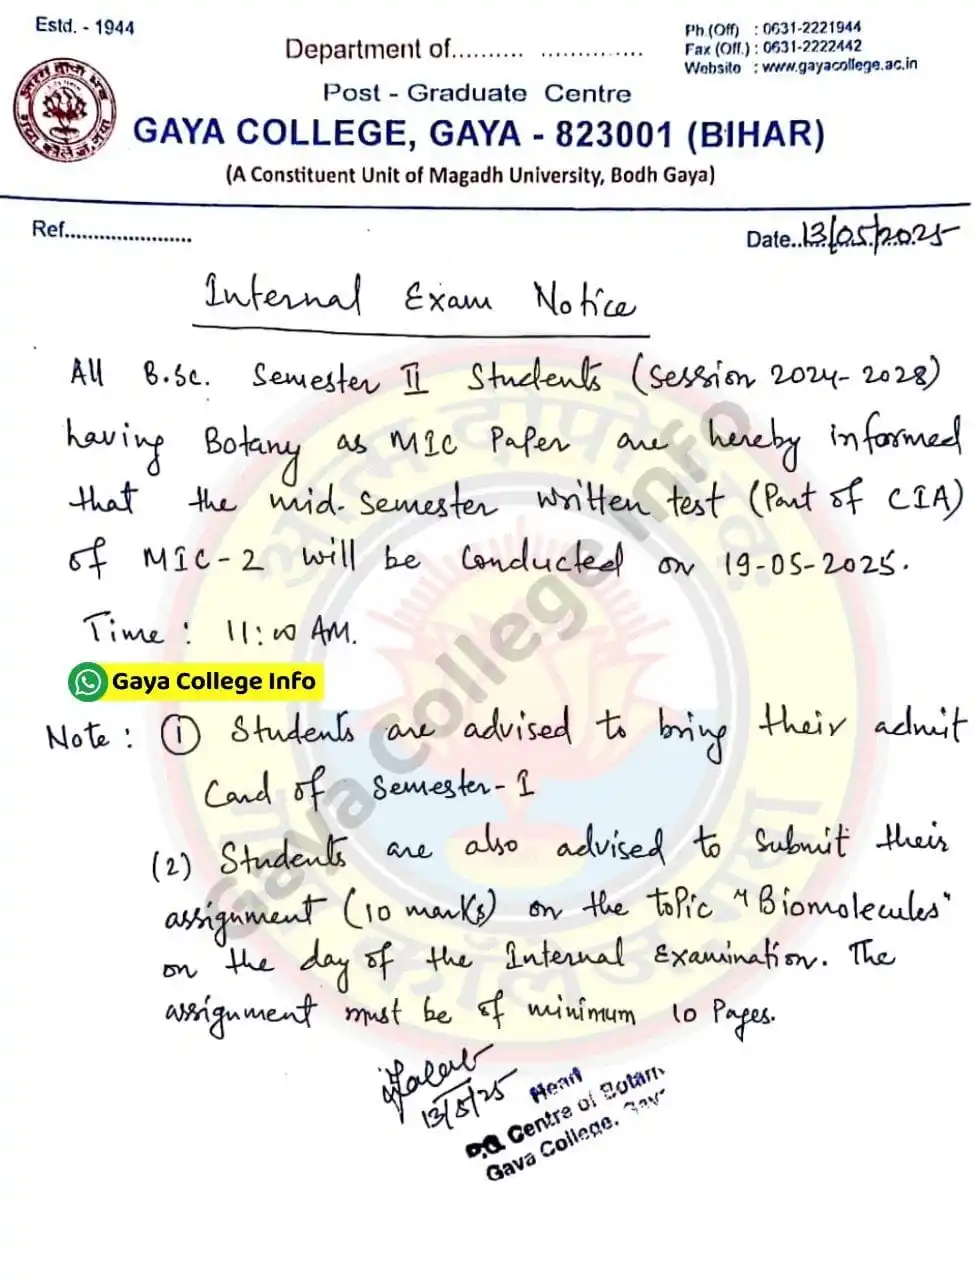 Estd. - 1944
Ph.(Off) : 0631-2221944
Fax (Off.) : 0631-2222442
Website : www.gayacollege.ac.in
Department of............ ..................
Post - Graduate Centre
GAYA COLLEGE, GAYA - 823001 (BIHAR)
(A Constituent Unit of Magadh University, Bodh Gaya)
Ref......................
Date..13/05/2025
Internal Exam Notice
All B.Sc. Semester II Students (Session 2024-2028)
having Botany as MIC Paper are hereby informed
that the mid-Semester written test (Part of CIA)
of MIC-2 will be conducted on 19-05-2025.
Time : 11:00 AM.
Gaya College Info
Note : (1) Students are advised to bring their admit
Card of Semester-I
(2) Students are also advised to Submit their
assignment (10 marks) on the topic "Biomolecules"
on the day of the Internal Examination. The
assignment must be of minimum 10 Pages.
13/5/25
Head
P.G Centre of Botany
Gaya College, Gaya
Gaya College Info